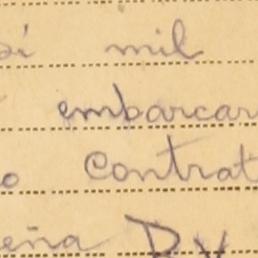 sí mil
embarcar
o Contrat
eña D.